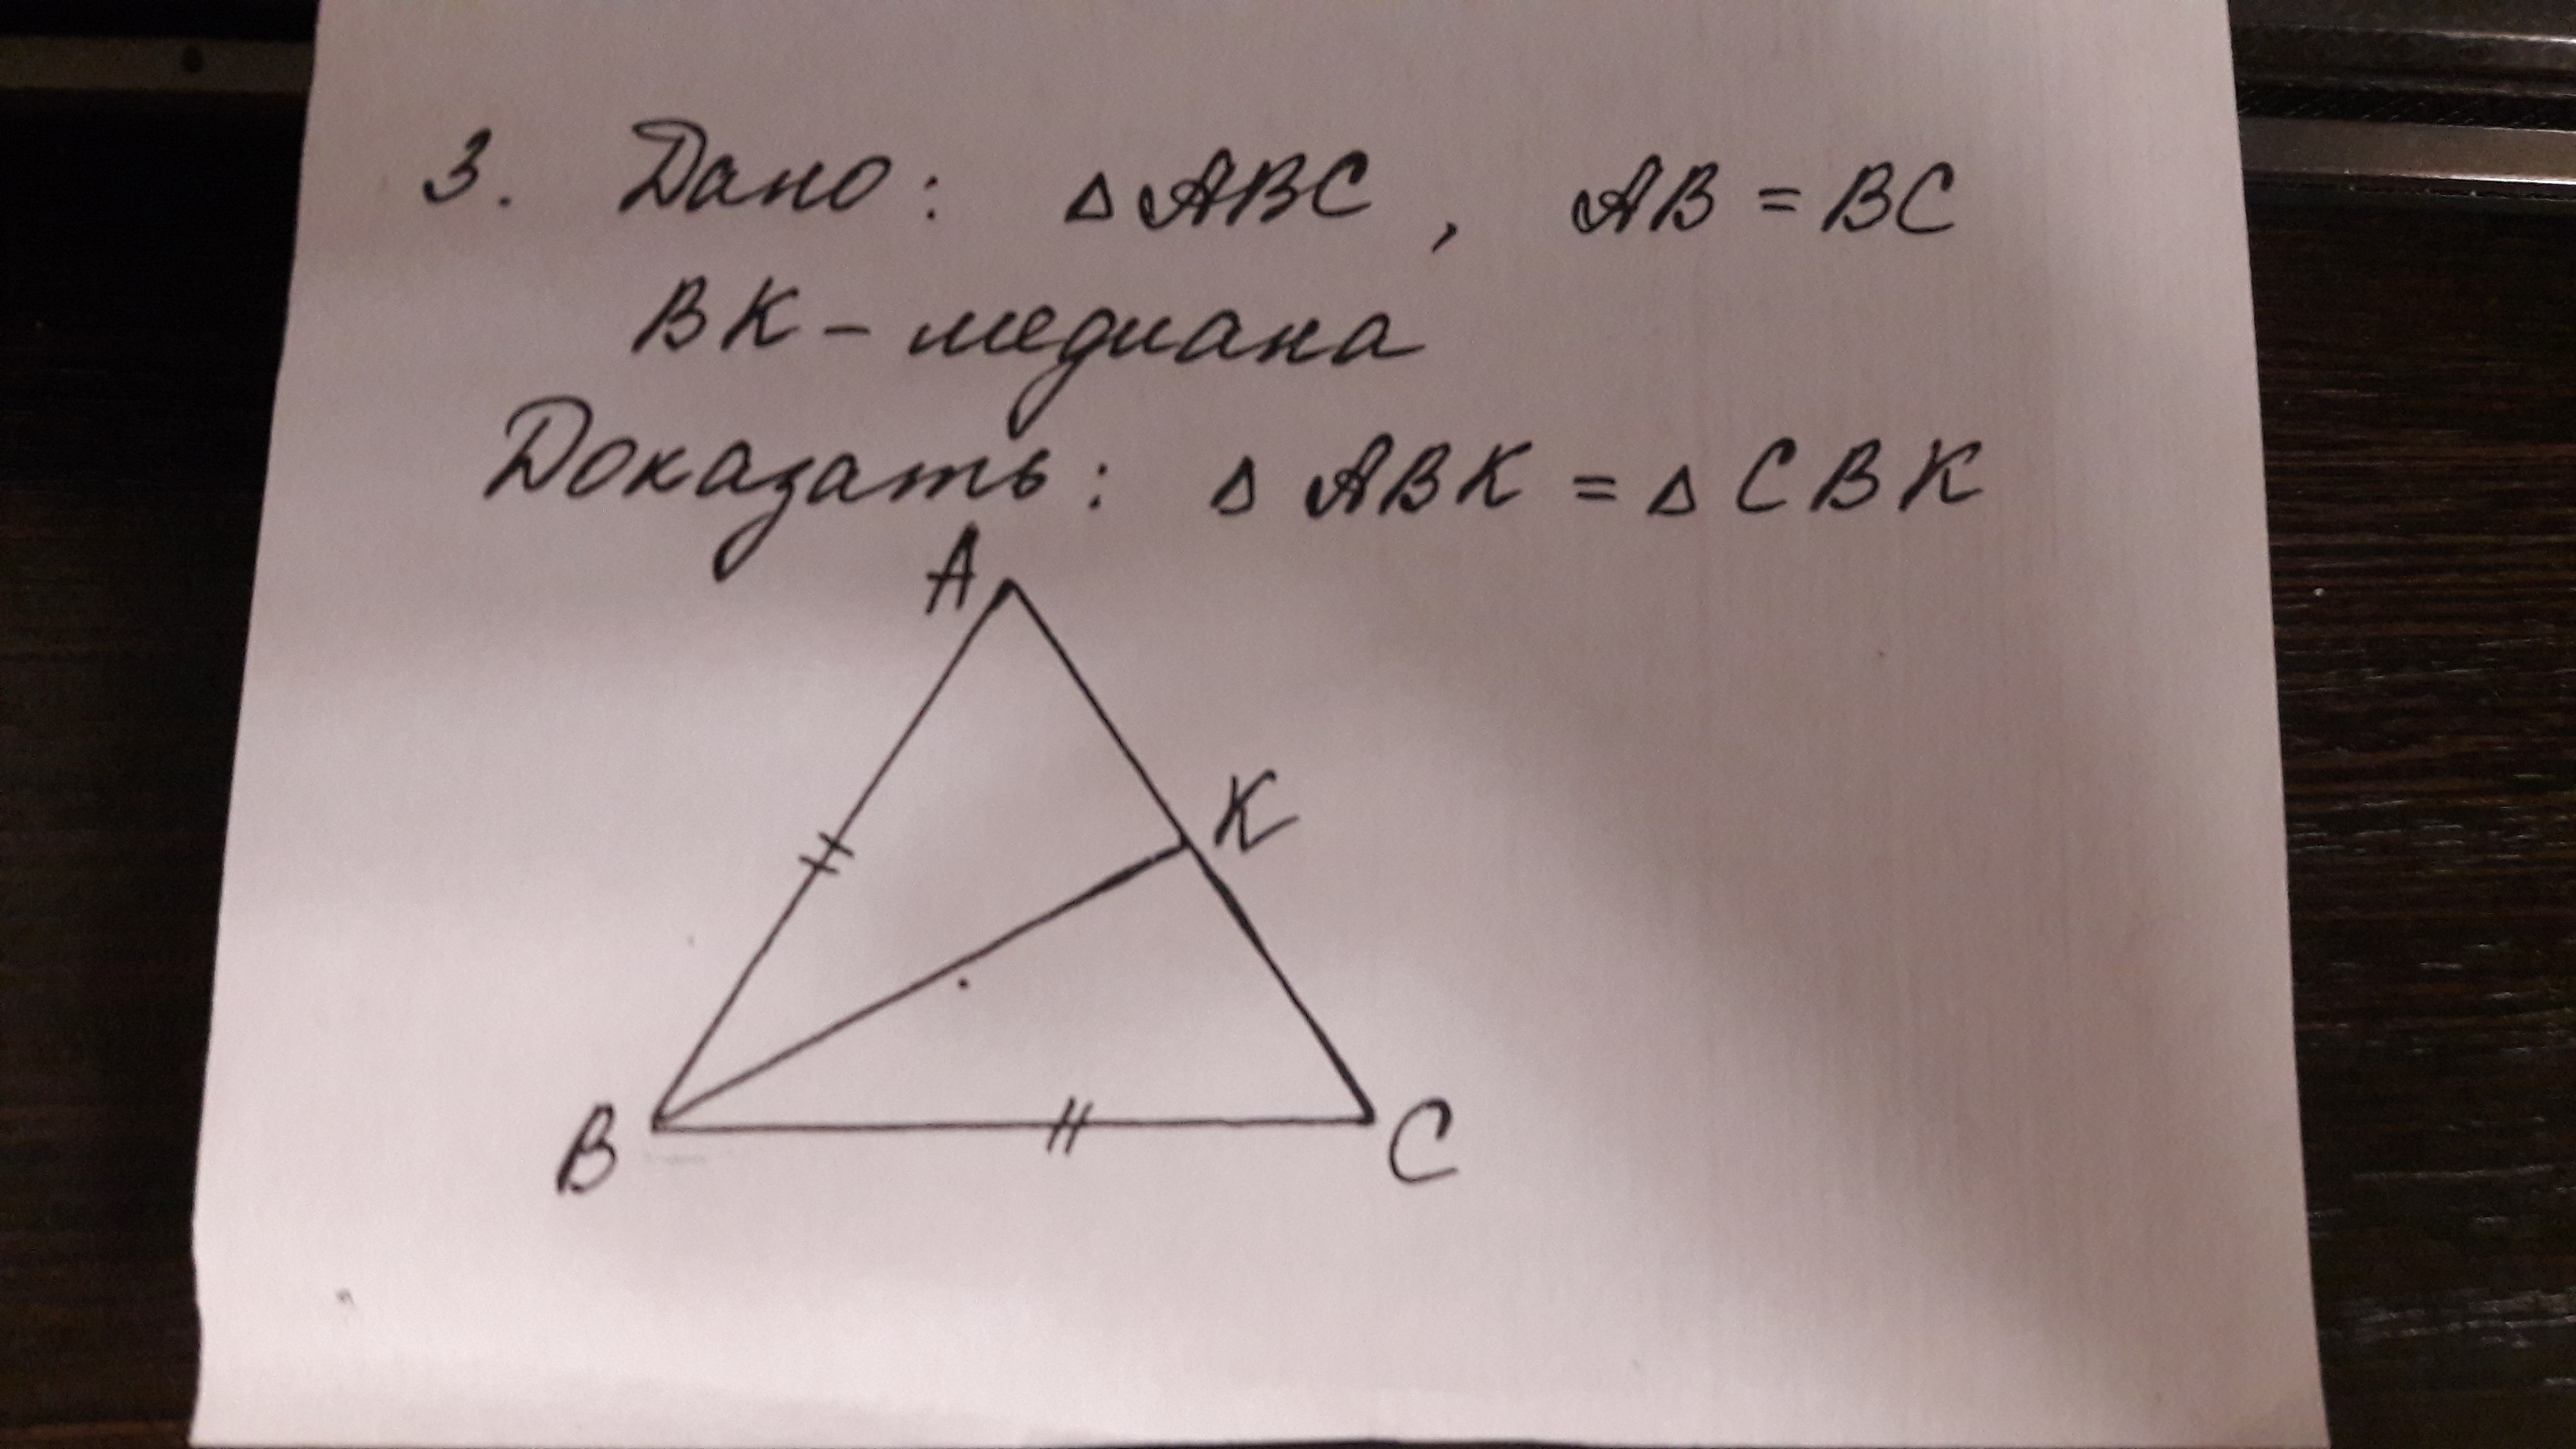 3. Дано: △ABC, AB = BC
BK – медиана
Доказать: △ ABK = △ CBK
A
K
B
C